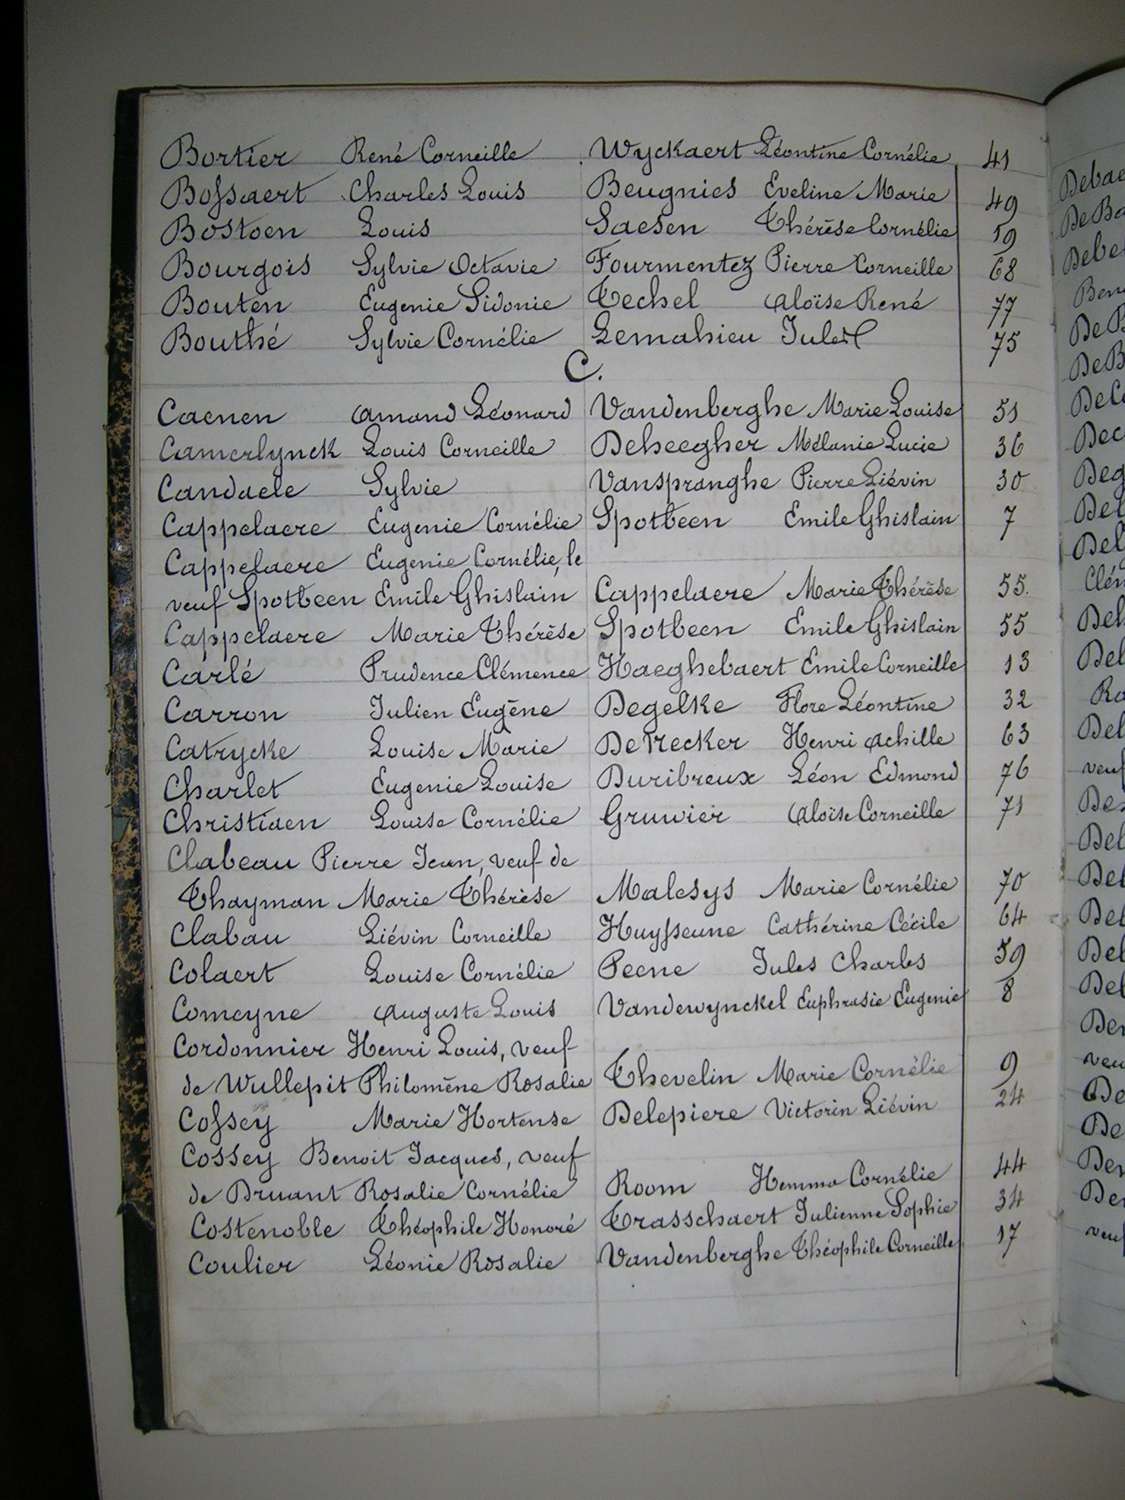 Bortier René Corneille Wyckaert Léontine Cornélie 41
Bossaert Charles Louis Beugnies Eveline Marie 49
Bostoen Louis Saesen Thérèse Cornélie 59
Bourgois Sylvie Octavie Fourmentez Pierre Corneille 68
Bouten Eugenie Sidonie Techel Aloïse René 77
Bouthé Sylvie Cornélie Lemahieu Jules 75
C.
Caenen Amand Léonard Vandenberghe Marie Louise 51
Camerlynck Louis Corneille Deheegher Mélanie Lucie 36
Candaele Sylvie Vanspranghe Pierre Liévin 30
Cappelaere Eugenie Cornélie Spotbeen Emile Ghislain 7
Cappelaere Eugenie Cornélie, le
veuf Spotbeen Emile Ghislain Cappelaere Marie Thérèse 55.
Cappelaere Marie Thérèse Spotbeen Emile Ghislain 55
Carlé Prudence Clémence Haeghebaert Emile Corneille 13
Carron Julien Eugène Degelke Flore Léontine 32
Catrycke Louise Marie Henri Achille 63
Charlet Eugenie Louise Duribreux Léon Edmond 76
Christiaen Louise Cornélie Gruwier Aloïse Corneille 71
Clabeau Pierre Jean, veuf de
Thayman Marie Thérèse Malesys Marie Cornélie 70
Clabau Liévin Corneille Huysseune Cathérine Cécile 64
Colaert Louise Cornélie Peene Jules Charles 59
Comeyne Auguste Louis Vandewynckel Euphrasie Eugenie 8
Cordonnier Henri Louis, veuf
de Wullepit Philomène Rosalie Thevelin Marie Cornélie 9
Cossey Marie Hortense Delepiere Victorin Liévin 24
Cossey Benoit Jacques, veuf
de Druant Rosalie Cornélie Room Hemma Cornélie 44
Costenoble Théophile Honoré Trasschaert Julienne Sophie 34
Coulier Léonie Rosalie Vandenberghe Théophile Corneille 17